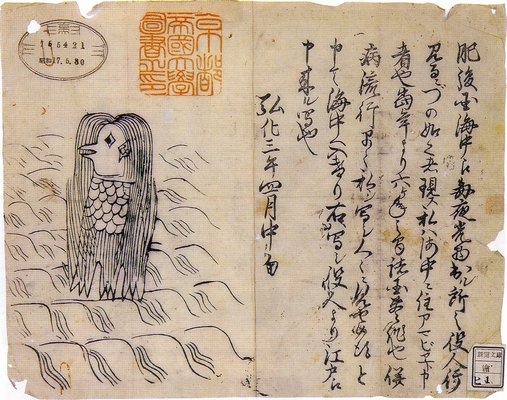 肥後国海中江毎夜光物出ル所之役人行
見るニづの如之者現ス私ハ海中ニ住アマビヱト申
者也当年より六ヶ年之間諸国豊作也併
病流行早々私ヲ写シ人々ニ見せ候得と
申て海中へ入けり右写シ役人より江戸江
申来ル写也
弘化三年四月中旬
京都
帝國大學
圖書之印
165421
昭和17.6.30
新聞文庫